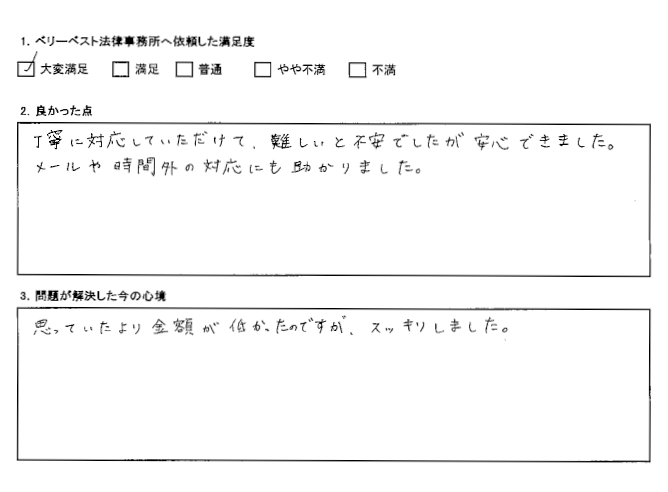 1. ベリーベスト法律事務所へ依頼した満足度
☑ 大変満足 □ 満足 □ 普通 □ やや不満 □ 不満
2. 良かった点
丁寧に対応していただけて、難しいと不安でしたが安心できました。
メールや時間外の対応にも助かりました。
3. 問題が解決した今の心境
思っていたより金額が低かったのですが、スッキリしました。